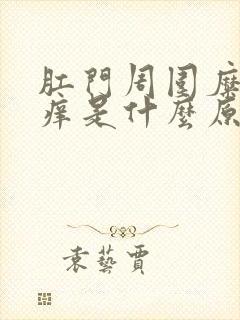 肛門周围
痒是什麼原
袁藝賈